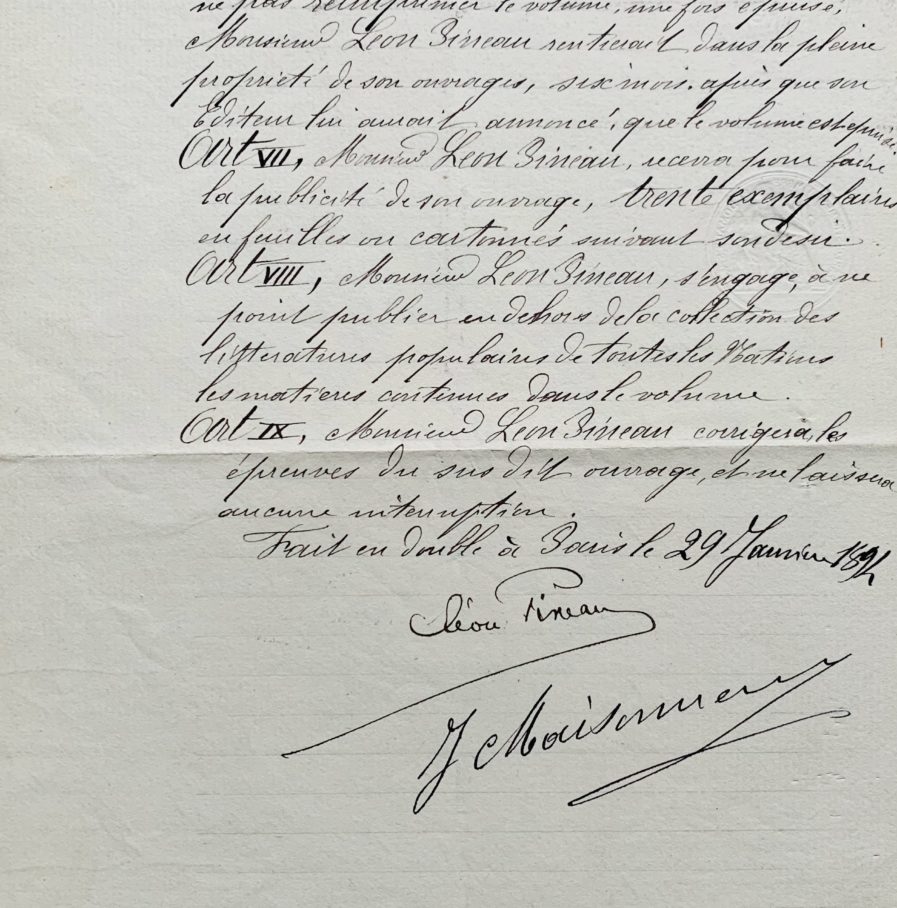 ne pas réimprimer le volume, une fois épuisé,
Monsieur Léon Pineau rentrerait dans la pleine
proprieté de son ouvrages, six mois. après que son
Editeur lui aurait annoncé, que le volume est épuisé.
Art VII, Monsieur Léon Pineau, recevra pour faire
la publicité de son ouvrage, trente exemplaires
en feuilles ou cartonnés suivant son desir.
Art VIII, Monsieur Léon Pineau, s'engage, à ne
point publier en dehors de la collection des
littératures populaires de toutes les Nations
les matières contenues dans le volume.
Art IX, Monsieur Léon Pineau corrigera, les
épreuves du sus dit ouvrage, et ne laissera
aucune interruption.
Fait en double à Paris le 29 Janvier 1894
Léon Pineau
J Maisonneuve